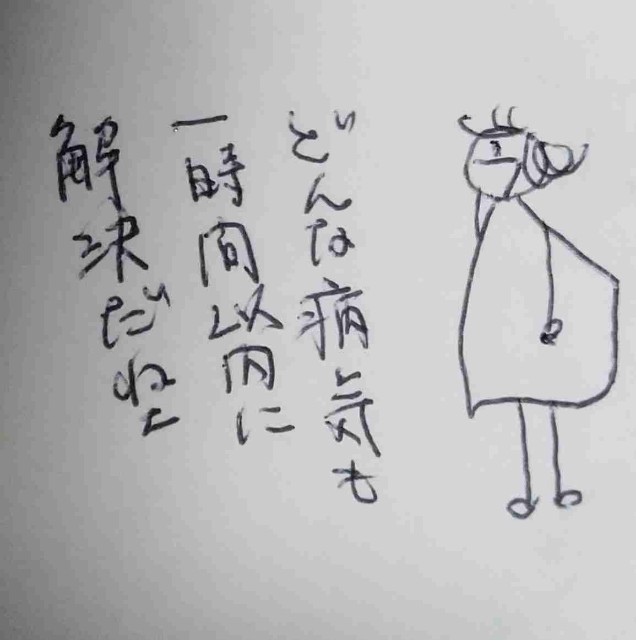 どんな病気も
一時間以内に
解決だねと